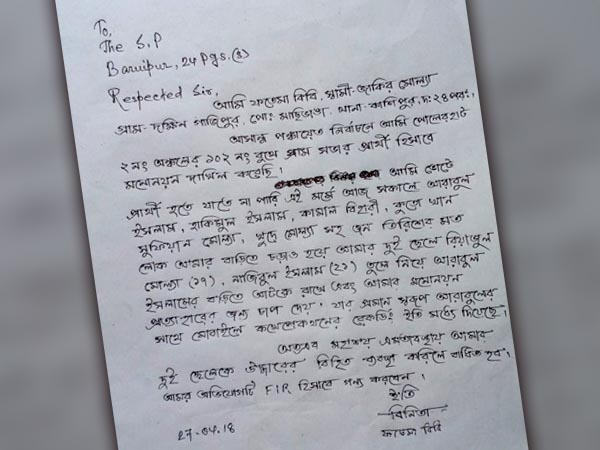 To,
The S.P
Baruipur, 24 Pgs.(S)
Respected Sir,
আমি ফতেমা বিবি, স্বামী-জাকির মোল্যা
গ্রাম-দক্ষিন গাজিপুর, পোঃ মাছিভাঙা, থানা-কাশিপুর, দঃ ২৪ পরঃ,
আসন্ন পঞ্চায়েত নির্বাচনে আমি পোলেরহাট
২ নং অঞ্চলের ১০২ নং বুথে গ্রাম সভার প্রার্থী হিসাবে
মনোনয়ন দাখিল করেছি।
আমি ভোটে
প্রার্থী হতে যাতে না পারি এই মর্মে আজ সকালে আরাবুল
ইসলাম, হাকিমুল ইসলাম, কামাল বিহারী, খান
সুফিয়ান মোল্যা, খুদে মোল্যা সহ জন তিরিশের মত
লোক আমার বাড়িতে চড়াও হয়ে আমার দুই ছেলে
মোল্যা (১৭), নাজিবুল ইসলাম (২১) তুলে নিয়ে আরাবুল
ইসলামের বাড়িতে আটকে রাখে এবং আমার মনোনয়ন
প্রত্যাহারের জন্য চাপ দেয়। যার প্রমান স্বরূপ আরাবুলের
সাথে মোবাইলে কথোপকথনের রেকর্ডিং ইতি মধ্যে দিয়েছি।
অতএব মহাশয় এমতাবস্থায় আমার
দুই ছেলেকে উদ্ধারের বিহিত ব্যবস্থা করিলে বাধিত হব।
আমার অভিযোগটি FIR হিসাবে গন্য করবেন।
ইতি
বিনিতা
ফতেমা বিবি
27.04.18